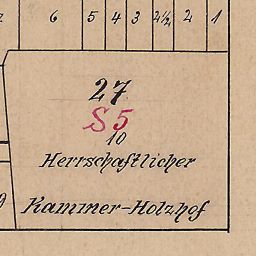 6 5 4 3 2½ 2 1
27
S 5
10
Herrschaftlicher
Kammer-Holzhof
9